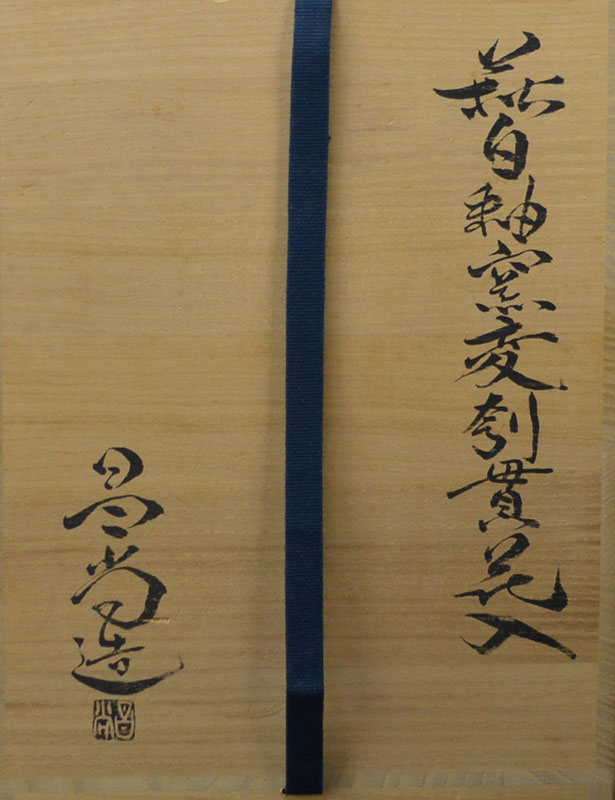 萩白釉窯変刳貫花入
昌尚造